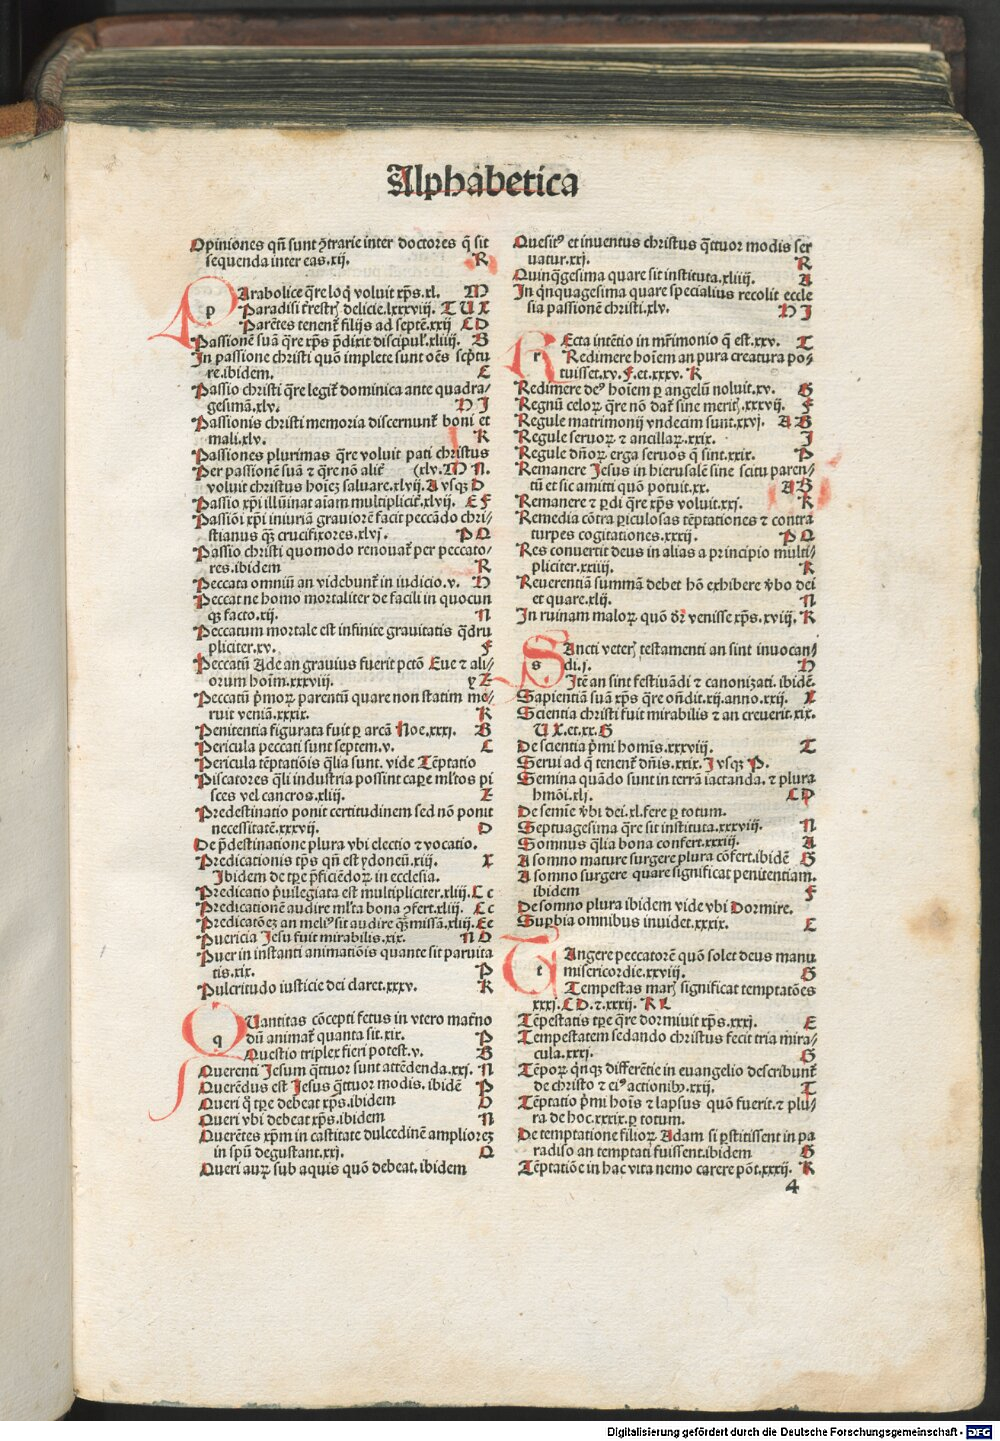 Alphabetica
Opiniones qñ sunt ꝯtrarie inter doctores q̄ sit
sequenda inter eas.xij. R
PArabolice q̄re loq̄ voluit xp̄s.xl. M
p Paradisi t̄restrꝭ delicie.lxxxviij. T U X
Parētes tenent̄ filijs ad septē.xxij C D
Passionē suā q̄re xp̄s p̄dixit discipul'.xliiij. B
In passione christi quō implete sunt oēs scp̄tu
re.ibidem. C
Passio christi q̄re legit̄ dominica ante quadra/
gesimā.xlv. H I
Passionis christi memoria discernunt̄ boni et
mali.xlv. K
Passiones plurimas q̄re voluit pati christus
Per passionē suā ⁊ q̄re nō alit̄ (xlv.M N.
voluit christus hoīeꝫ saluare.xlvij.A vsqꝫ D
Passio xp̄i illuīnat aīam multiplicit̄.xlvij. E F
Passiōi xp̄i iniuriā grauiorē facit peccādo chri/
stianus qꝫ̄ crucifixores.xlvj. P Q
Passio christi quomodo renouat̄ per peccato/
res.ibidem R
Peccata omniū an videbunt̄ in iudicio.v. H
Peccat ne homo mortaliter de facili in quocun
qꝫ facto.xij. N
Peccatum mortale est infinite grauitatis q̄dru
pliciter.xv. F
Peccatū Ade an grauius fuerit pctō Eue ⁊ ali/
orum hoīm.xxxviij. y Z
Peccatū p̄moꝝ parentū quare non statim me/
ruit veniā.xxxix. K
Penitentia figurata fuit ꝑ arcā Noe.xxxj. B
Pericula peccati sunt septem.v. C
Pericula tēptatiōis q̄lia sunt. vide Tēptatio
Piscatores q̄li industria possint caꝑe ml̄tos pi
sces vel cancros.xliij. Z
Predestinatio ponit certitudinem sed nō ponit
necessitatē.xxxvij. D
De p̄destinatione plura vbi electio ⁊ vocatio.
Predicationis tp̄s qñ est ydoneū.xiij. X
Ibidem de tꝑe p̄ficiēdoꝝ in ecclesia.
Predicatio p̄uilegiata est multipliciter.xliij.C c
Predicationē audire ml̄ta bona ꝯfert.xliij. C c
Predicatōeꝫ an meliꝰ sit audire qꝫ̄ missā.xliij.E e
Puericia Jesu fuit mirabilis.xix. N O
Puer in instanti animatiōis quante sit paruita
tis.xix. P
Pulcritudo iusticie dei claret.xxxv. K
QUantitas cōcepti fetus in vtero mat̄no
q dū animat̄ quanta sit.xix. P
Questio triplex fieri potest.v. B
Querenti Jesum q̄ttuor sunt attēdenda.xxj. N
Querēdus est Jesus q̄ttuor modis. ibidē P
Queri q̄ tꝑe debeat xp̄s.ibidem O
Queri vbi debeat xp̄s.ibidem N
Querētes xp̄m in castitate dulcedinē amplioreꝫ
in spū degustant.xxj. Q
Queri auꝝ sub aquis quō debeat. ibidem
Quesitꝰ et inuentus christus q̄ttuor modis ser
uatur.xxj. R
Quinq̄gesima quare sit instituta.xliiij. A
In q̄nquagesima quare specialius recolit eccle
sia passionē christi.xlv. H I
REcta intētio in mr̄imonio q̄ est.xxv. T
r Redimere hoīem an pura creatura po/
tuisset.xv. F.et.xxxv. K
Redimere deꝰ hoīem ꝑ angelū noluit.xv. G
Regnū celoꝝ q̄re nō dat̄ sine meritꝭ.xxxvij. F
Regule matrimonij vndecim sunt.xxvj. A B
Regule seruoꝝ ⁊ ancillaꝝ.xxix. I
Regule dñoꝝ erga seruos q̄ sint.xxix. P
Remanere Jesus in hierusalē sine scitu paren/
tū et sic amitti quō potuit.xx. A B
Remanere ⁊ ꝑdi q̄re xp̄s voluit.xxj. K
Remedia cōtra ꝑiculosas tēptationes ⁊ contra
turpes cogitationes.xxxij. P Q
Res conuertit deus in alias a principio multi/
pliciter.xxiiij. K
Reuerentiā summā debet hō exhibere v̄bo dei
et quare.xlij. N
In ruinam maloꝝ quō dr̄ venisse xp̄s.xviij. K
SAncti veterꝭ testamenti an sint inuocan/
s di.j. H
Itē an sint festiuādi ⁊ canonizati.ibidē.
Sapientiā suā xp̄s q̄re on̄dit.xij.anno.xxij. X
Scientia christi fuit mirabilis ⁊ an creuerit.xix.
U X.et.xx.G
De scientia p̄mi homīs.xxxviij. T
Serui ad q̄ tenent̄ dn̄is.xxix.I vsqꝫ P.
Semina quādo sunt in terrā iactanda. ⁊ plura
hmōi.xlj. C D
De semīe v̄bi dei.xl.fere ꝑ totum.
Septuagesima q̄re sit instituta.xxxviij. N
Somnus q̄lia bona confert.xxxiij. A
A somno mature surgere plura cōfert.ibidē G
A somno surgere quare significat penitentiam.
ibidem F
De somno plura ibidem vide vbi Dormire.
Suꝑbia omnibus inuidet.xxxix. C
TAngere peccatorē quō solet deus manu
t misericordie.xxviij. G
Tempestas marꝭ significat temptatōes
xxxj.C D.⁊.xxxij. K L
Tēpestatis tꝑe q̄re dormiuit xp̄s.xxxj. E
Tempestatem sedando christus fecit tria mira/
cula.xxxj. G
Tēpoꝝ q̄nqꝫ differētie in euangelio describunt̄
de christo ⁊ eiꝰ actionibꝫ.xxij. T
Tēptatio p̄mi hoīs ⁊ lapsus quō fuerit.⁊ plu/
ra de hoc.xxxix.ꝑ totum.
De temptatione filioꝝ Adam si ꝑstitissent in pa
radiso an temptati fuissent.ibidem G
Tēptatiōe in hac vita nemo carere pōt.xxxij. K
4
Digitalisierung gefördert durch die Deutsche Forschungsgemeinschaft - DFG